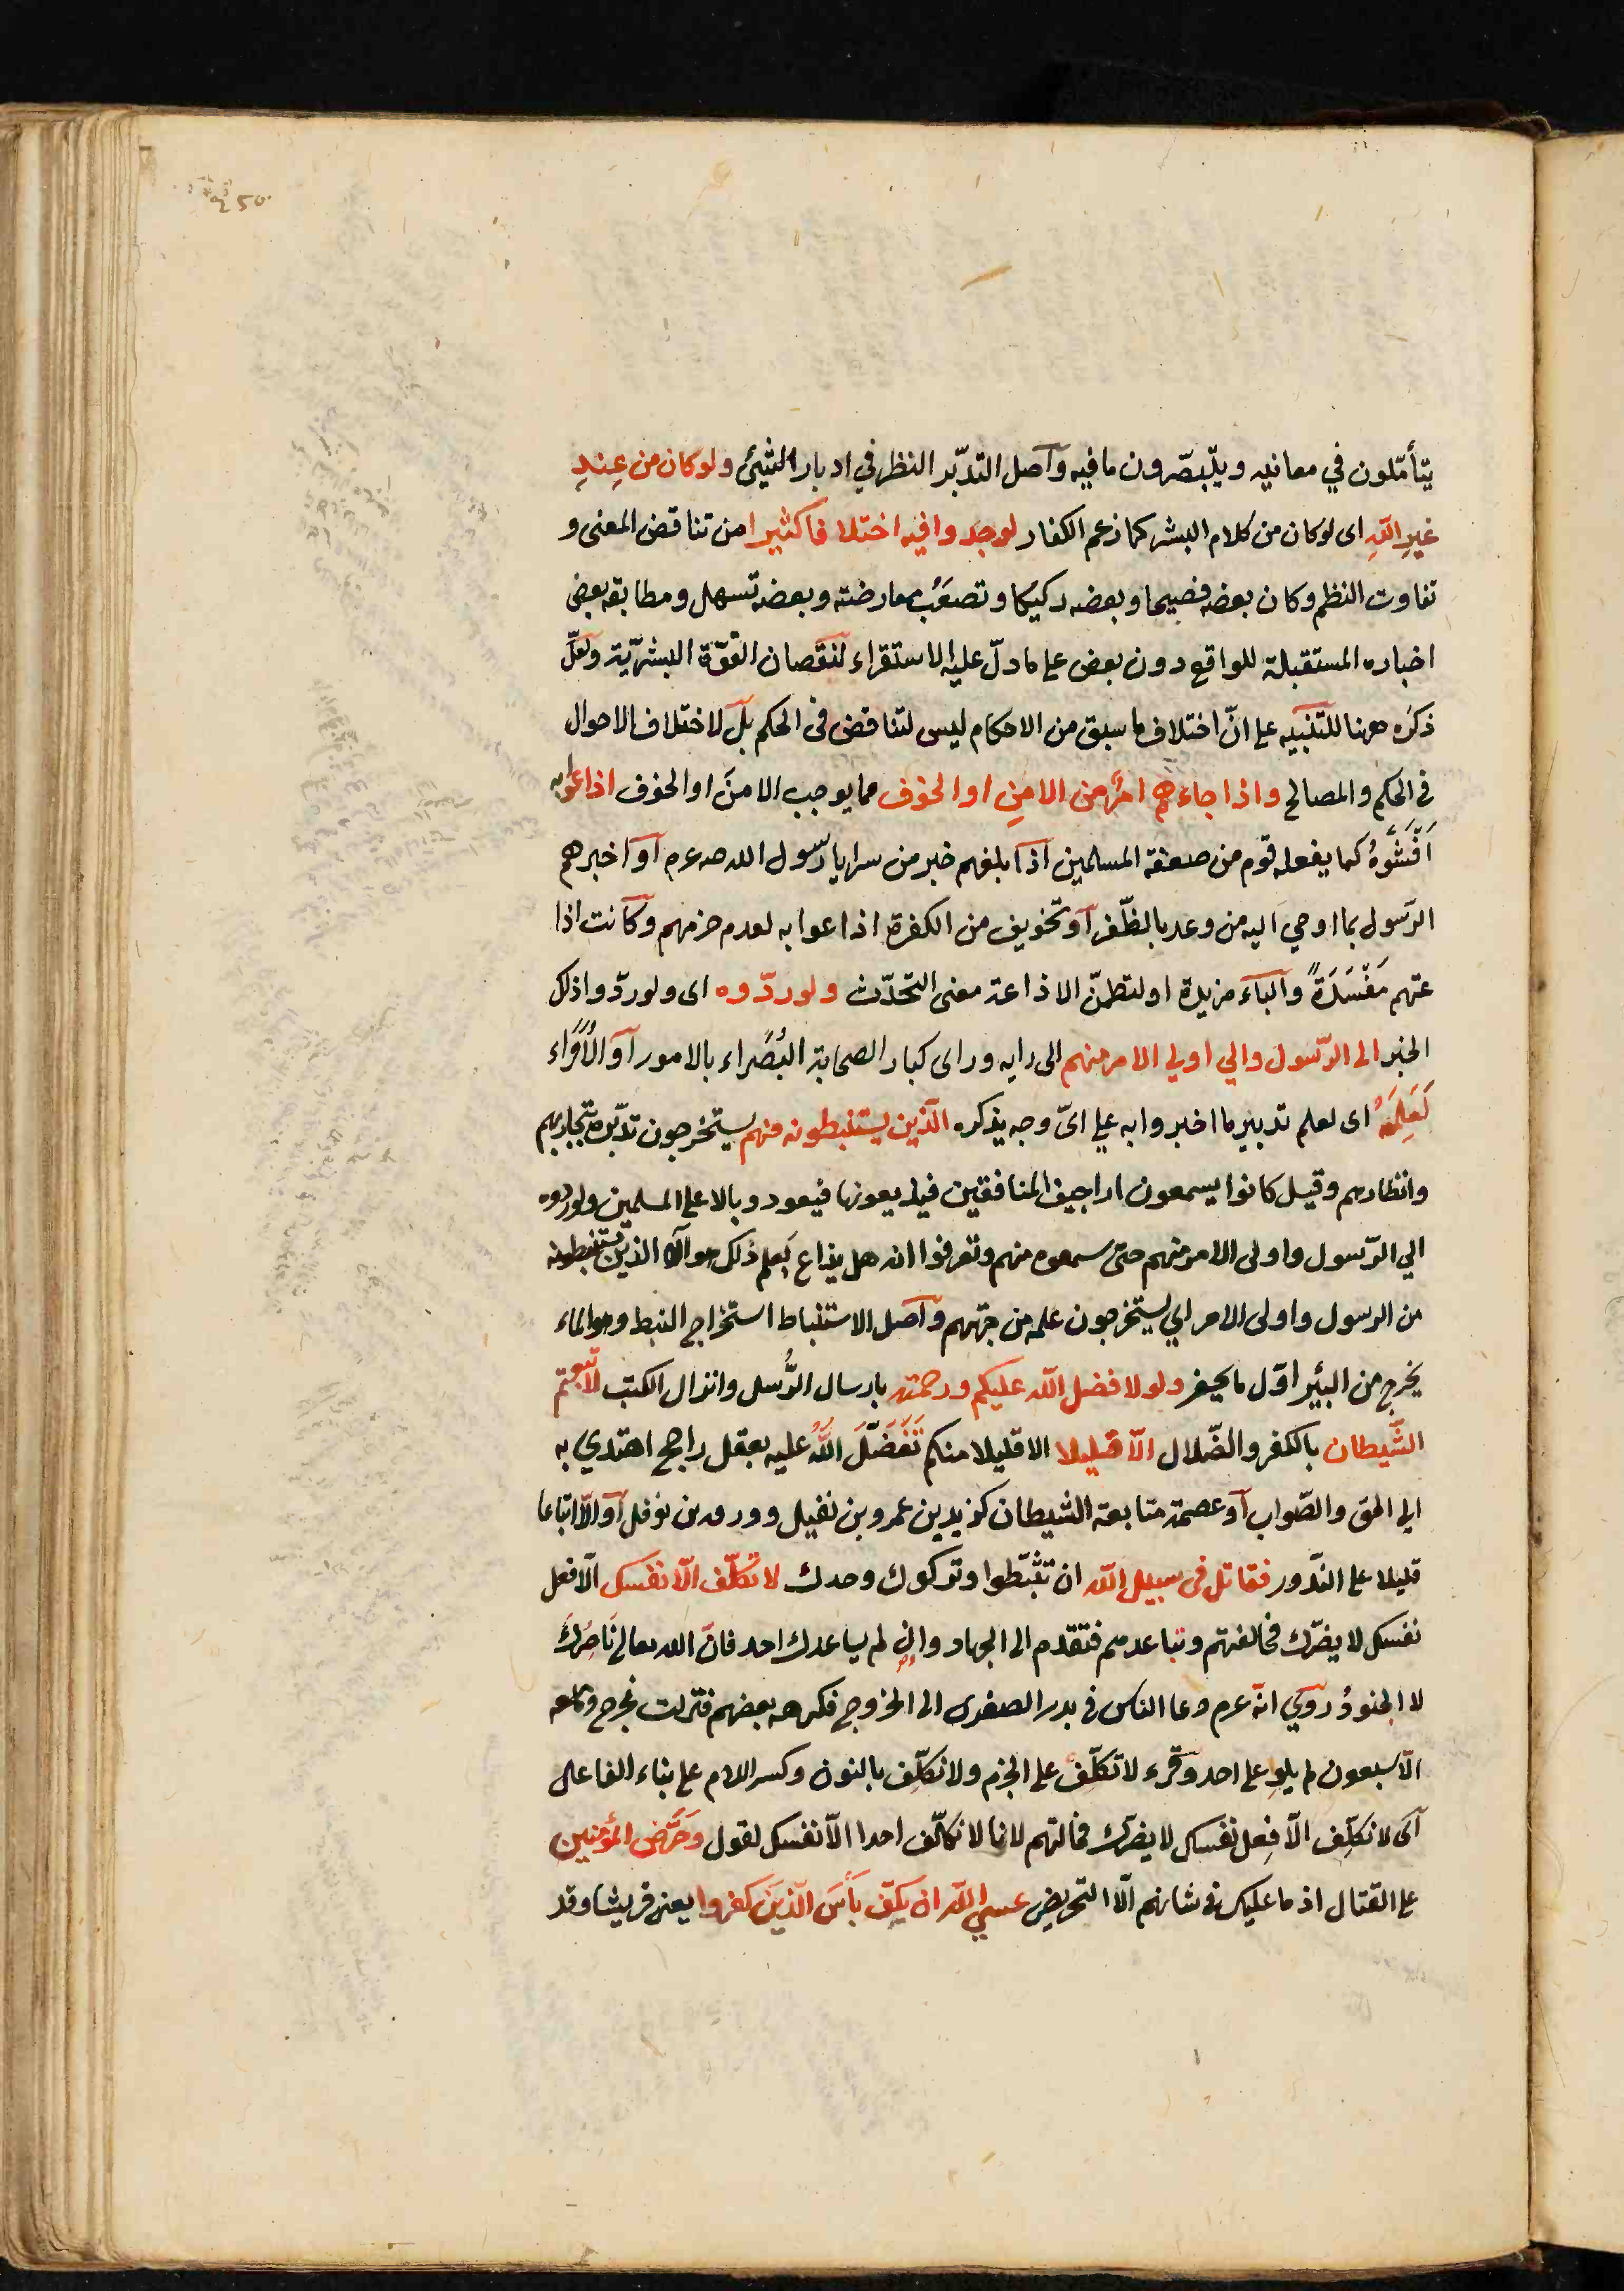 يتأمّلون في معانيه ويتبصّرون ما فيه وآصل التدبّر النظر في ادبار الشيئ ولو كان من عِندِ
غيرِ اللّهِ اى لو كان من كلام البشر كما زعم الكفار لوجدوا فيه اختلافا كثيرا من تناقض المعنى و
تفاوت النظم وكان بعضه فصيحا وبعضه ركيكا وتصعُب معارضته وبعضه تسهل ومطابقه بعض
اخباره المستقبلة للواقع دون بعض على ما دلّ عليه الاستقراء لنقصان القوّة البشريّة ولعلّ
ذكره ههنا للتنبيه على انّ اختلاف ما سبق من الاحكام ليس لتناقض فى الحكم بل لاختلاف الاحوال
فى الحكم والمصالح واذا جاءهم امرٌ من الامنِ او الخوف مما يوجب الامنَ او الخوف اذاعوا به
اَفْشَوْهُ كما يفعله قوم من ضعفة المسلمين اذا بلغهم خبر من سرايا رسول الله صدعرم آو اخبرهم
الرّسول بما اوحي اليه من وعد بالظّفر آو تخويف من الكفرة اذاعوا به لعدم حزمهم وكانت اذا
عتهم مَفْسَدَةً وآلباء مزيدة او لتظمنّ الاذاعة معنى التحدّث ولو ردّوه اى ولو ردّوا ذلك
الخبر الى الرّسول والي اولي الامر منهم الى رايه وراى كبار الصحابة البُصَراء بالامور آو الاُمَراء
لَعَلِمَهُ اى لعلم تدبير ما اخبروا به على اىّ وجه يذكره الّذين يستنبطونه منهم يستخرجون تدبّره بتجاربهم
وانظارهم وقيل كانوا يسمعون اراجيف المنافقين فيذيعونها فيعود وبالا على المسلمين ولو ردوه
الي الرّسول واولى الامر منهم حتى سمعوه منهم وتعرفوا انه هل يذاع لَعلم ذلك هؤلاء الذين يستنبطونه
من الرسول واولى الامر اي يستخرجون علمه من جهتهم وآصل الاستنباط استخراج النبط وهو الماء
يخرج من البئر اوّل ما يحفر ولولا فضل اللّه عليكم ورحمته بارسال الرُّسل وانزال الكتب لاتّبعتم
الشّيطان بالكفر والضّلال الّا قليلا الا قليلا منكم تَفَضَّلَ اللّهُ عليه بعقل راجح اهتدي به
الي الحق والصّواب آو عصمه متابعة الشيطان كزيد بن عمرو بن نفيل وورقه بن نوفل آو الّا اتباعا
قليلا على النّدور فقاتل فى سبيل اللّه ان تثبّطوا وتركوك وحدك لا تكلّف الّا نفسك الّا فعل
نفسك لا يضرّك مخالفتهم وتباعدهم فتقدم الى الجهاد وان لم يساعدك احد فانّ الله تعالى نَاصِرُكَ
لا الجنودُ روي انه عرم دعا الناس فى بدر الصغرى الى الخروج فكرهه بعضهم فنزلت فخرج وما معه
الّا سبعون لم يلوِ على احد وقرء لا تكلّف على الجزم ولا نكلّف بالنون وكسر اللام على بناء الفاعل
آى لا نكلّف الّا فِعل نفسك لا يضرّك مخالفتهم لا انا لا نكلّف احدا الّا نفسك لقول وحَرِّض المؤمنين
على القتال اذ ما عليك فى شانهم الّا التحريض عسي اللّه ان يكفّ بَأسَ الّذين كفروا يعنى قريشا وقد